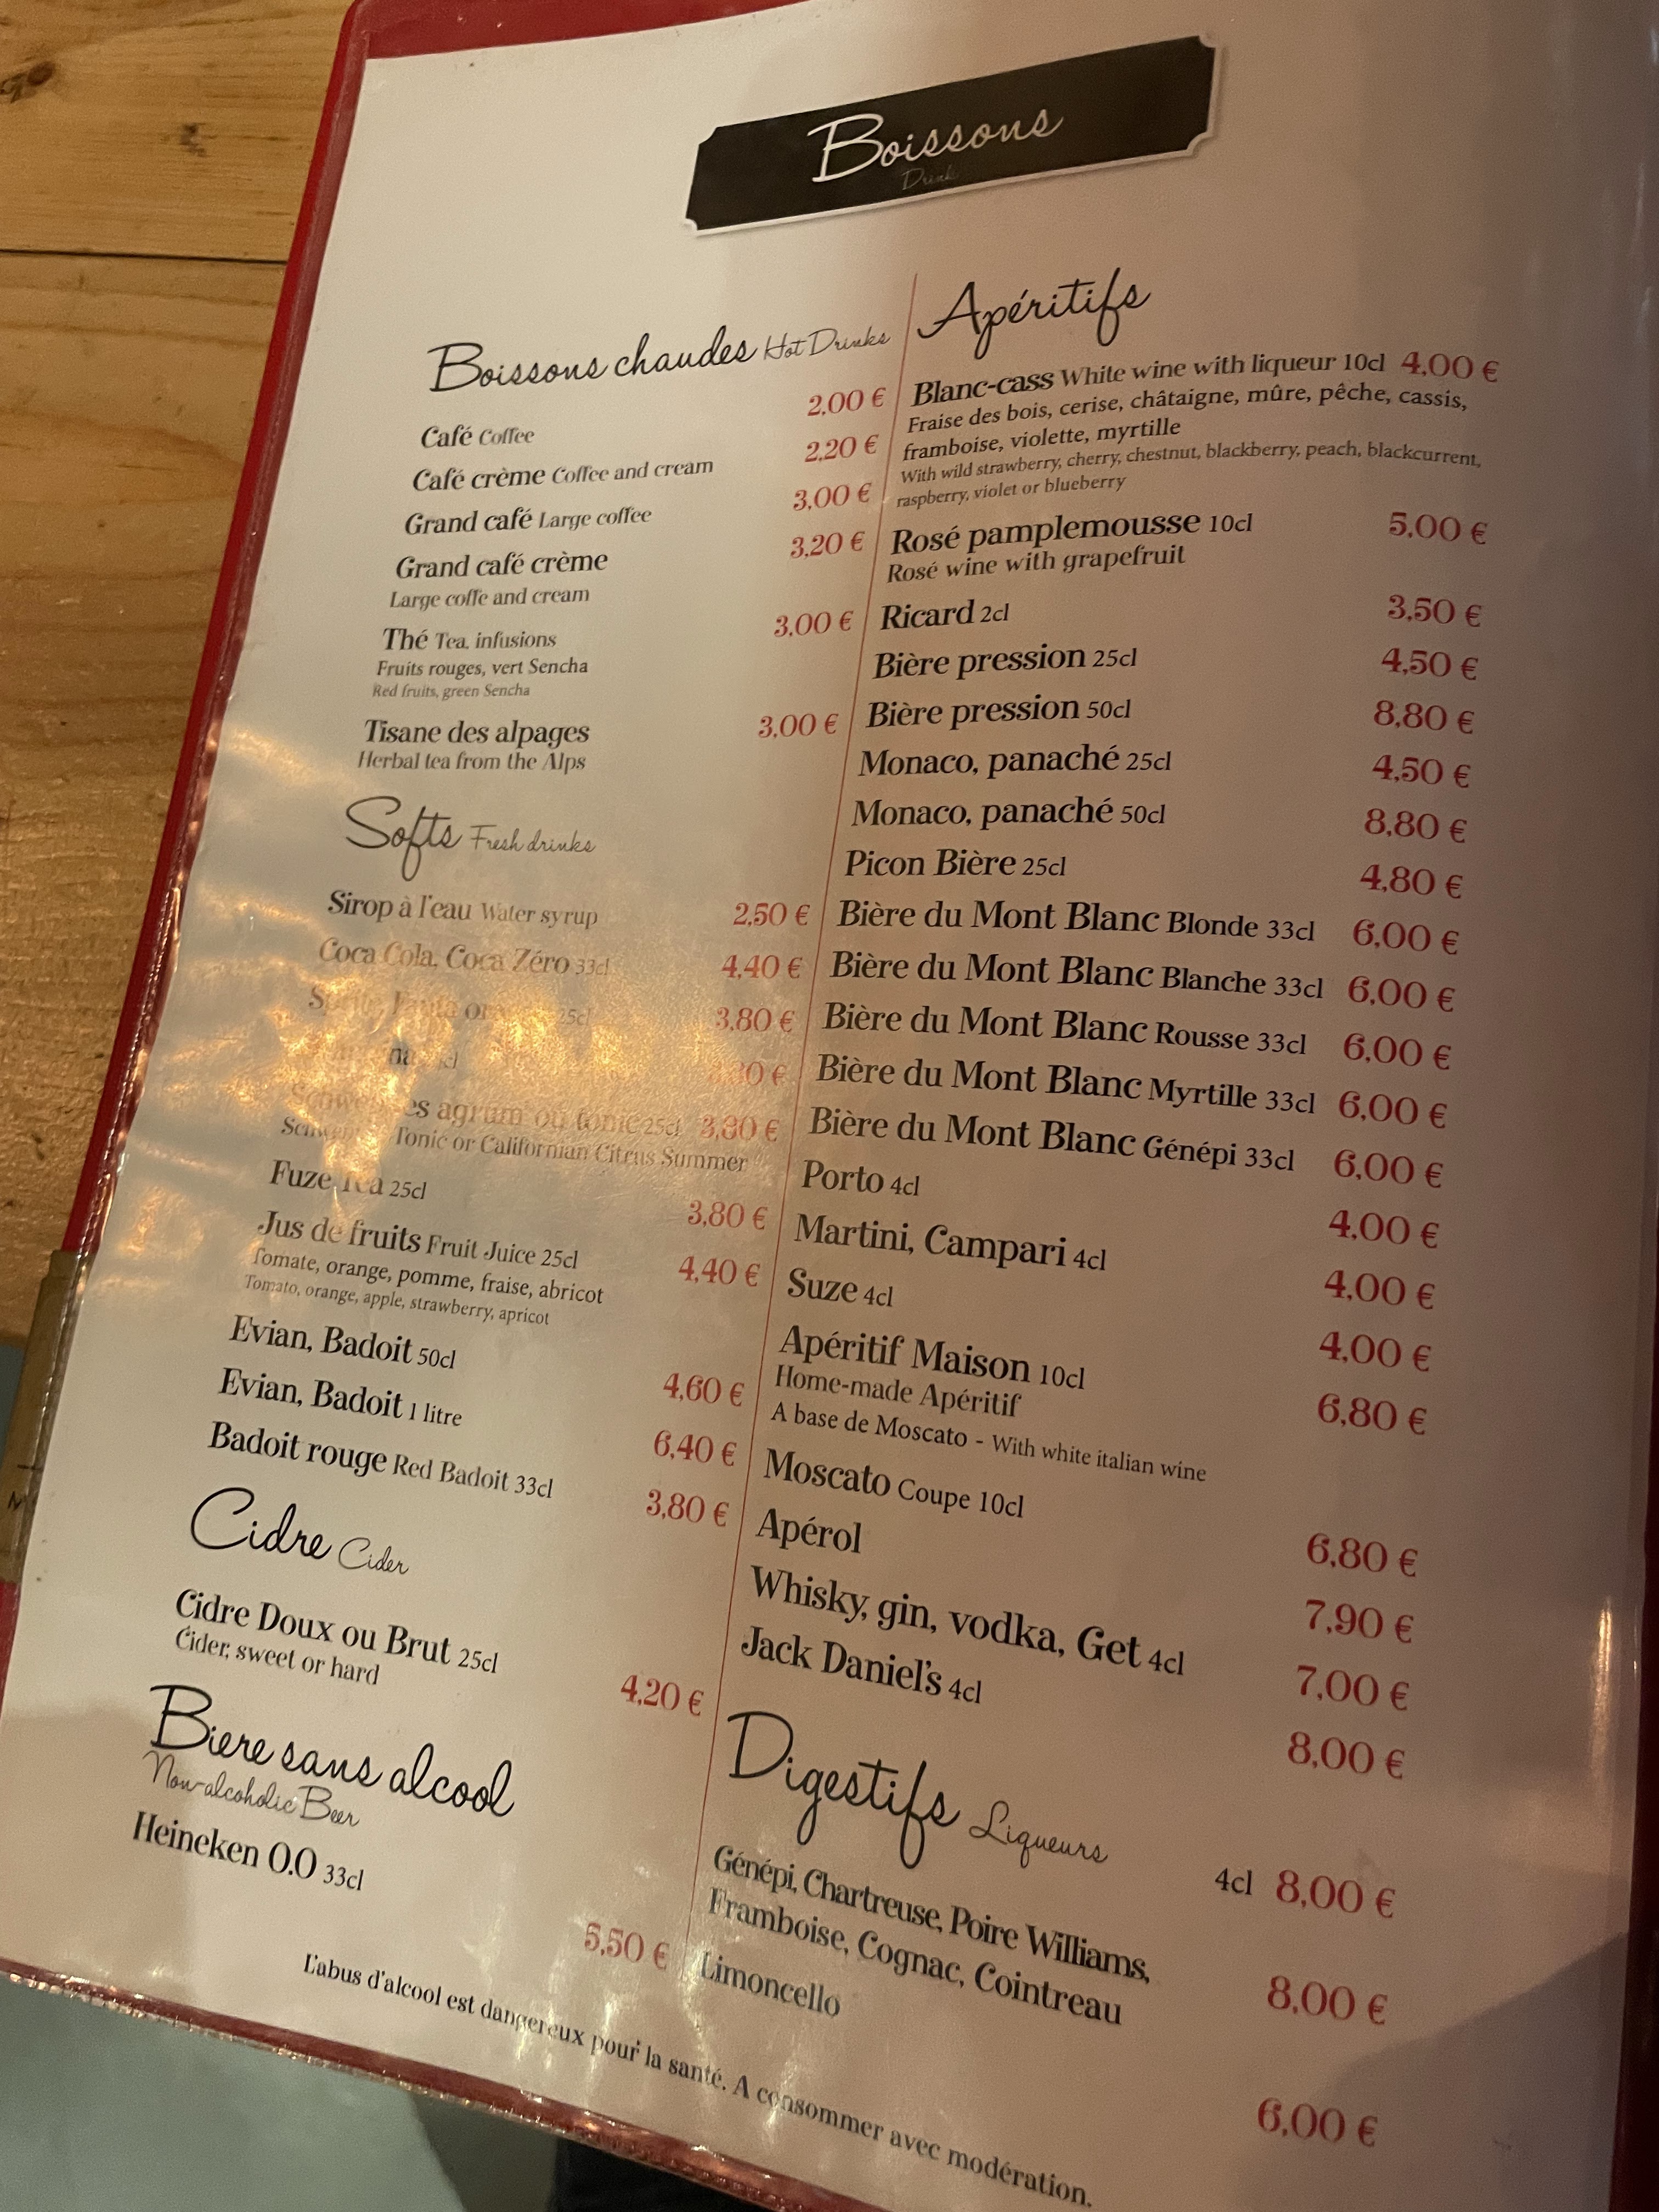 Boissons
Drink
Boissons chaudes Hot Drinks
Café Coffee 2,00 €
Café crème Coffee and cream 2,20 €
Grand café Large coffee 3,00 €
Grand café crème 3,20 €
Large coffe and cream
Thé Tea, infusions 3,00 €
Fruits rouges, vert Sencha
Red fruits, green Sencha
Tisane des alpages 3,00 €
Herbal tea from the Alps
Softs Fresh drinks
Sirop à l'eau Water syrup 2,50 €
Coca Cola, Coca Zéro 33cl 4,40 €
25cl 3,80 €
€
agrum ou tonic 25cl 3,80 €
Tonic or Californian Citrus Summer
Fuze Tea 25cl 3,80 €
Jus de fruits Fruit Juice 25cl 4,40 €
Tomate, orange, pomme, fraise, abricot
Tomato, orange, apple, strawberry, apricot
Evian, Badoit 50cl 4,60 €
Evian, Badoit 1 litre 6,40 €
Badoit rouge Red Badoit 33cl 3,80 €
Cidre Cider
Cidre Doux ou Brut 25cl 4,20 €
Cider, sweet or hard
Biere sans alcool
Non-alcoholic Beer
Heineken 0.0 33cl 5,50 €
Apéritifs
Blanc-cass White wine with liqueur 10cl 4,00 €
Fraise des bois, cerise, châtaigne, mûre, pêche, cassis,
framboise, violette, myrtille
With wild strawberry, cherry, chestnut, blackberry, peach, blackcurrent,
raspberry, violet or blueberry
Rosé pamplemousse 10cl 5,00 €
Rosé wine with grapefruit
Ricard 2cl 3,50 €
Bière pression 25cl 4,50 €
Bière pression 50cl 8,80 €
Monaco, panaché 25cl 4,50 €
Monaco, panaché 50cl 8,80 €
Picon Bière 25cl 4,80 €
Bière du Mont Blanc Blonde 33cl 6,00 €
Bière du Mont Blanc Blanche 33cl 6,00 €
Bière du Mont Blanc Rousse 33cl 6,00 €
Bière du Mont Blanc Myrtille 33cl 6,00 €
Bière du Mont Blanc Génépi 33cl 6,00 €
Porto 4cl 4,00 €
Martini, Campari 4cl 4,00 €
Suze 4cl 4,00 €
Apéritif Maison 10cl 6,80 €
Home-made Apéritif
A base de Moscato - With white italian wine
Moscato Coupe 10cl 6,80 €
Apérol 7,90 €
Whisky, gin, vodka, Get 4cl 7,00 €
Jack Daniel's 4cl 8,00 €
Digestifs Liqueurs
4cl 8,00 €
Génépi, Chartreuse, Poire Williams,
Framboise, Cognac, Cointreau 8,00 €
Limoncello 6,00 €
L'abus d'alcool est dangereux pour la santé. A consommer avec modération.